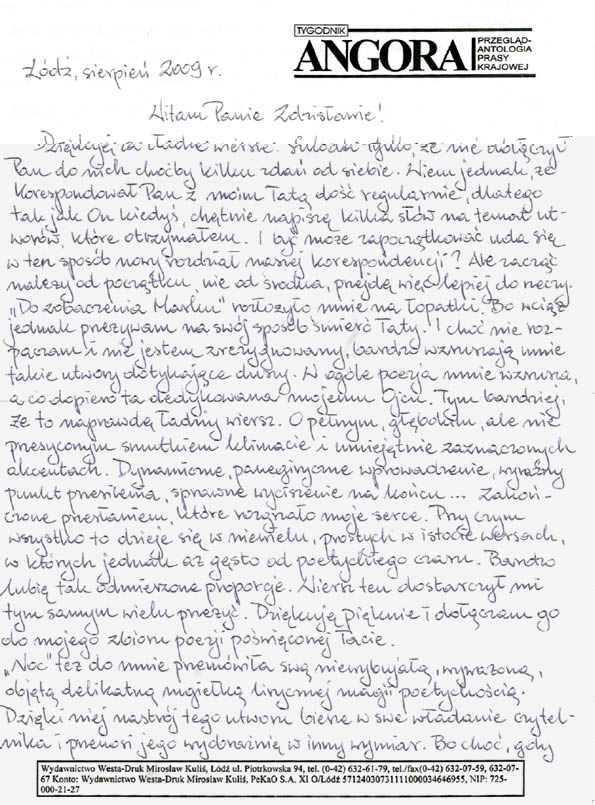 TYGODNIK
ANGORA
PRZEGLĄD-
ANTOLOGIA
PRASY
KRAJOWEJ
Łódź, sierpień 2009 r.
Witam Panie Zdzisławie!
Dziękuję za ładne wiersze. Szkoda tylko, że nie dołączył
Pan do nich choćby kilku zdań od siebie. Wiem jednak, że
korespondował Pan z moim Tatą dość regularnie, dlatego
tak jak On kiedyś, chętnie napiszę kilka słów na temat ut-
worów, które otrzymałem. I być może zapoczątkować uda się
w ten sposób nowy rozdział naszej korespondencji? Ale zacząć
należy od początku, nie od środka, przejdę więc lepiej do rzeczy.
„Do zobaczenia Marku" rozłożyło mnie na łopatki. Bo wciąż
jednak przeżywam na swój sposób śmierć Taty. I choć nie roz-
paczam i nie jestem zrezygnowany, bardzo wzruszają mnie
takie utwory dotykające duszy. W ogóle poezja mnie wzrusza,
a co dopiero ta dedykowana mojemu Ojcu. Tym bardziej,
że to naprawdę ładny wiersz. O pełnym, głębokim, ale nie
przesyconym smutkiem klimacie i umiejętnie zaznaczonych
akcentach. Dynamiczne, panegiryczne wprowadzenie, wyraźny
punkt przesilenia, sprawne wyciszenie na końcu... Zakoń-
czone przesłaniem, które rozgrzało moje serce. Przy czym
wszystko to dzieje się w niewielu, prostych w istocie wersach,
w których jednak aż gęsto od poetyckiego czaru. Bardzo
lubię tak odmierzone proporcje. Wiersz ten dostarczył mi
tym samym wielu przeżyć. Dziękuję pięknie i dołączam go
do mojego zbioru poezji poświęconej Tacie.
„Noc" też do mnie przemówiła swą niewybujałą, wyważoną,
objętą delikatną mgiełką lirycznej magii poetyckością.
Dzięki niej nastrój tego utworu bierze w swe władanie czytel-
nika i przenosi jego wyobraźnię w inny wymiar. Bo choć, gdy
Wydawnictwo Westa-Druk Mirosław Kuliś, Łódź ul. Piotrkowska 94, tel. (0-42) 632-61-79, tel./fax(0-42) 632-07-59, 632-07-
67 Konto: Wydawnictwo Westa-Druk Mirosław Kuliś, PeKaO S.A. XI O/Łódź 57124030731111000034646955, NIP: 725-
000-21-27